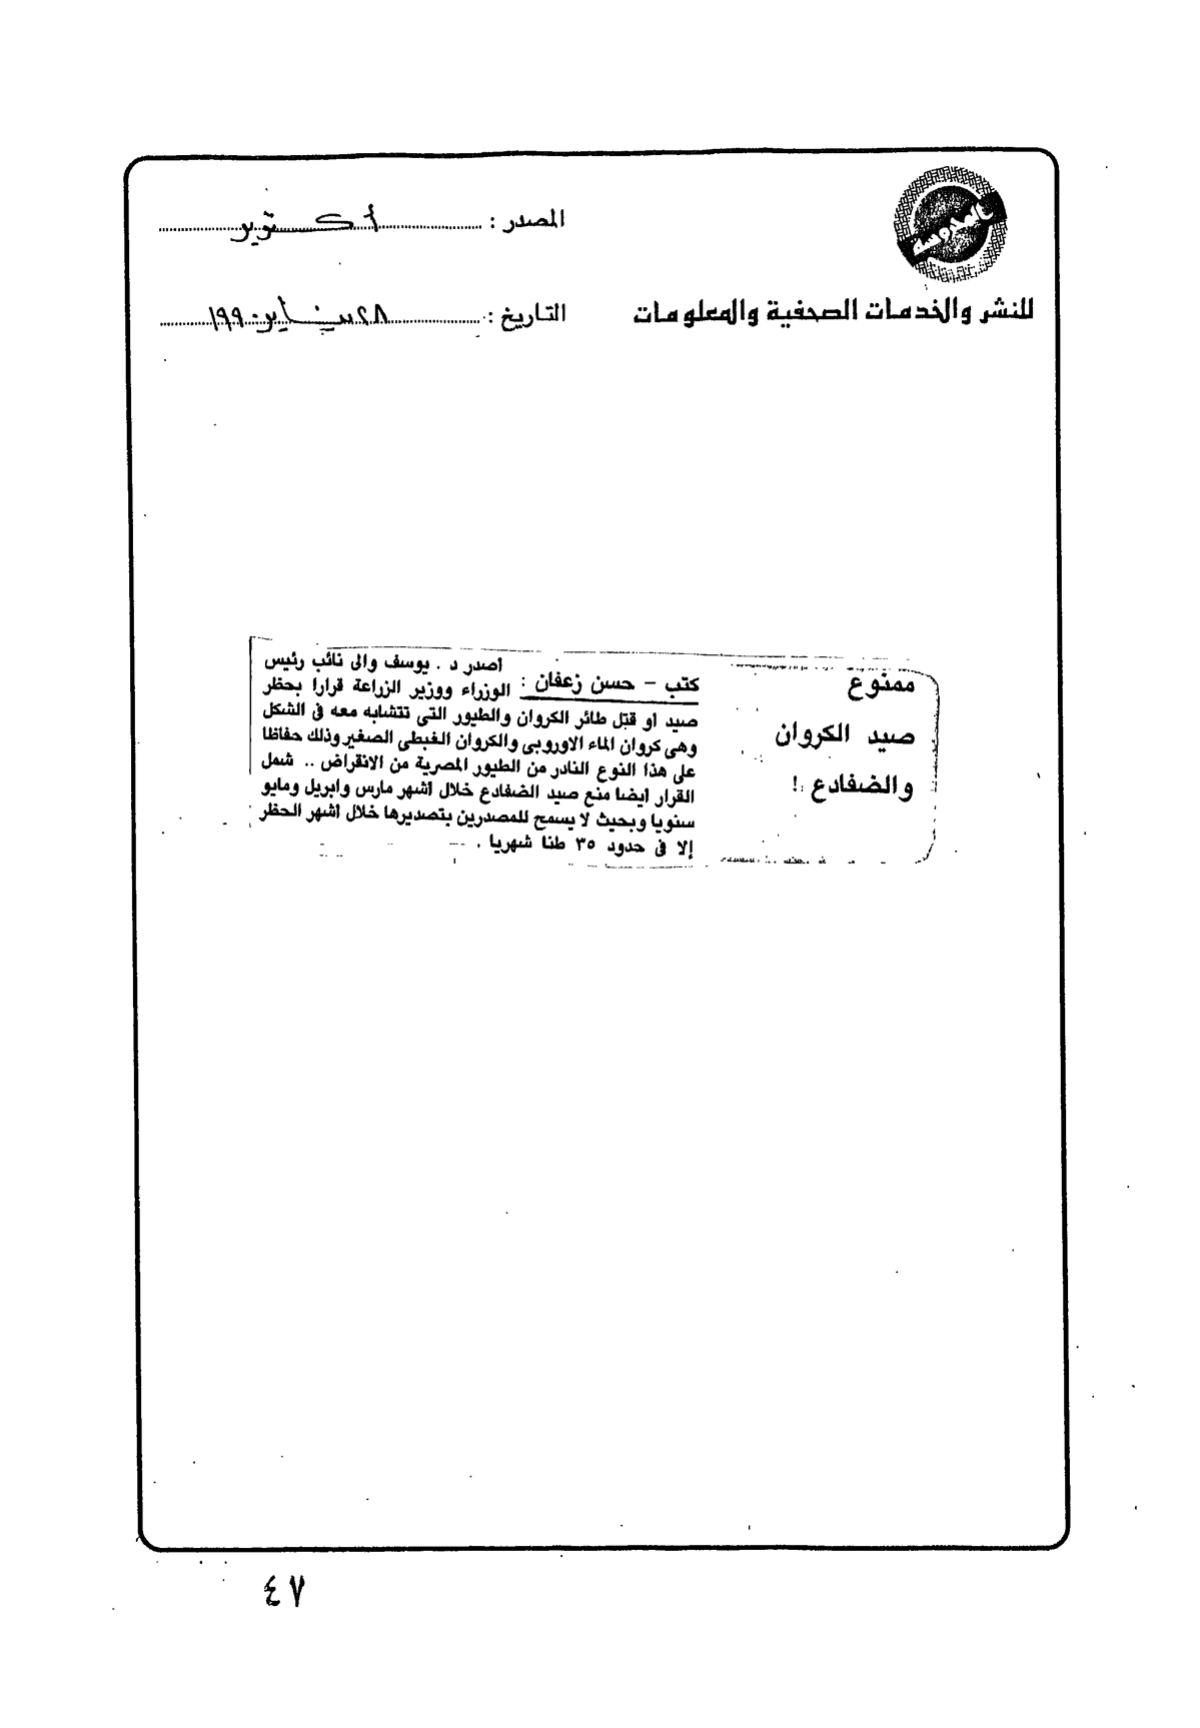 المصدر : أكتوبر
للنشر والخدمات الصحفية والمعلومات
التاريخ : ٢٨ يناير ١٩٩٠
ممنوع
صيد الكروان
والضفادع !
كتب - حسن زعفان :
اصدر د . يوسف والى نائب رئيس
الوزراء ووزير الزراعة قرارا بحظر
صيد او قتل طائر الكروان والطيور التى تتشابه معه فى الشكل
وهى كروان الماء الاوروبى والكروان الغيطى الصغير وذلك حفاظا
على هذا النوع النادر من الطيور المصرية من الانقراض .. شمل
القرار ايضا منع صيد الضفادع خلال اشهر مارس وابريل ومايو
سنويا وبحيث لا يسمح للمصدرين بتصديرها خلال اشهر الحظر
إلا فى حدود ٣٥ طنا شهريا .
٤٧